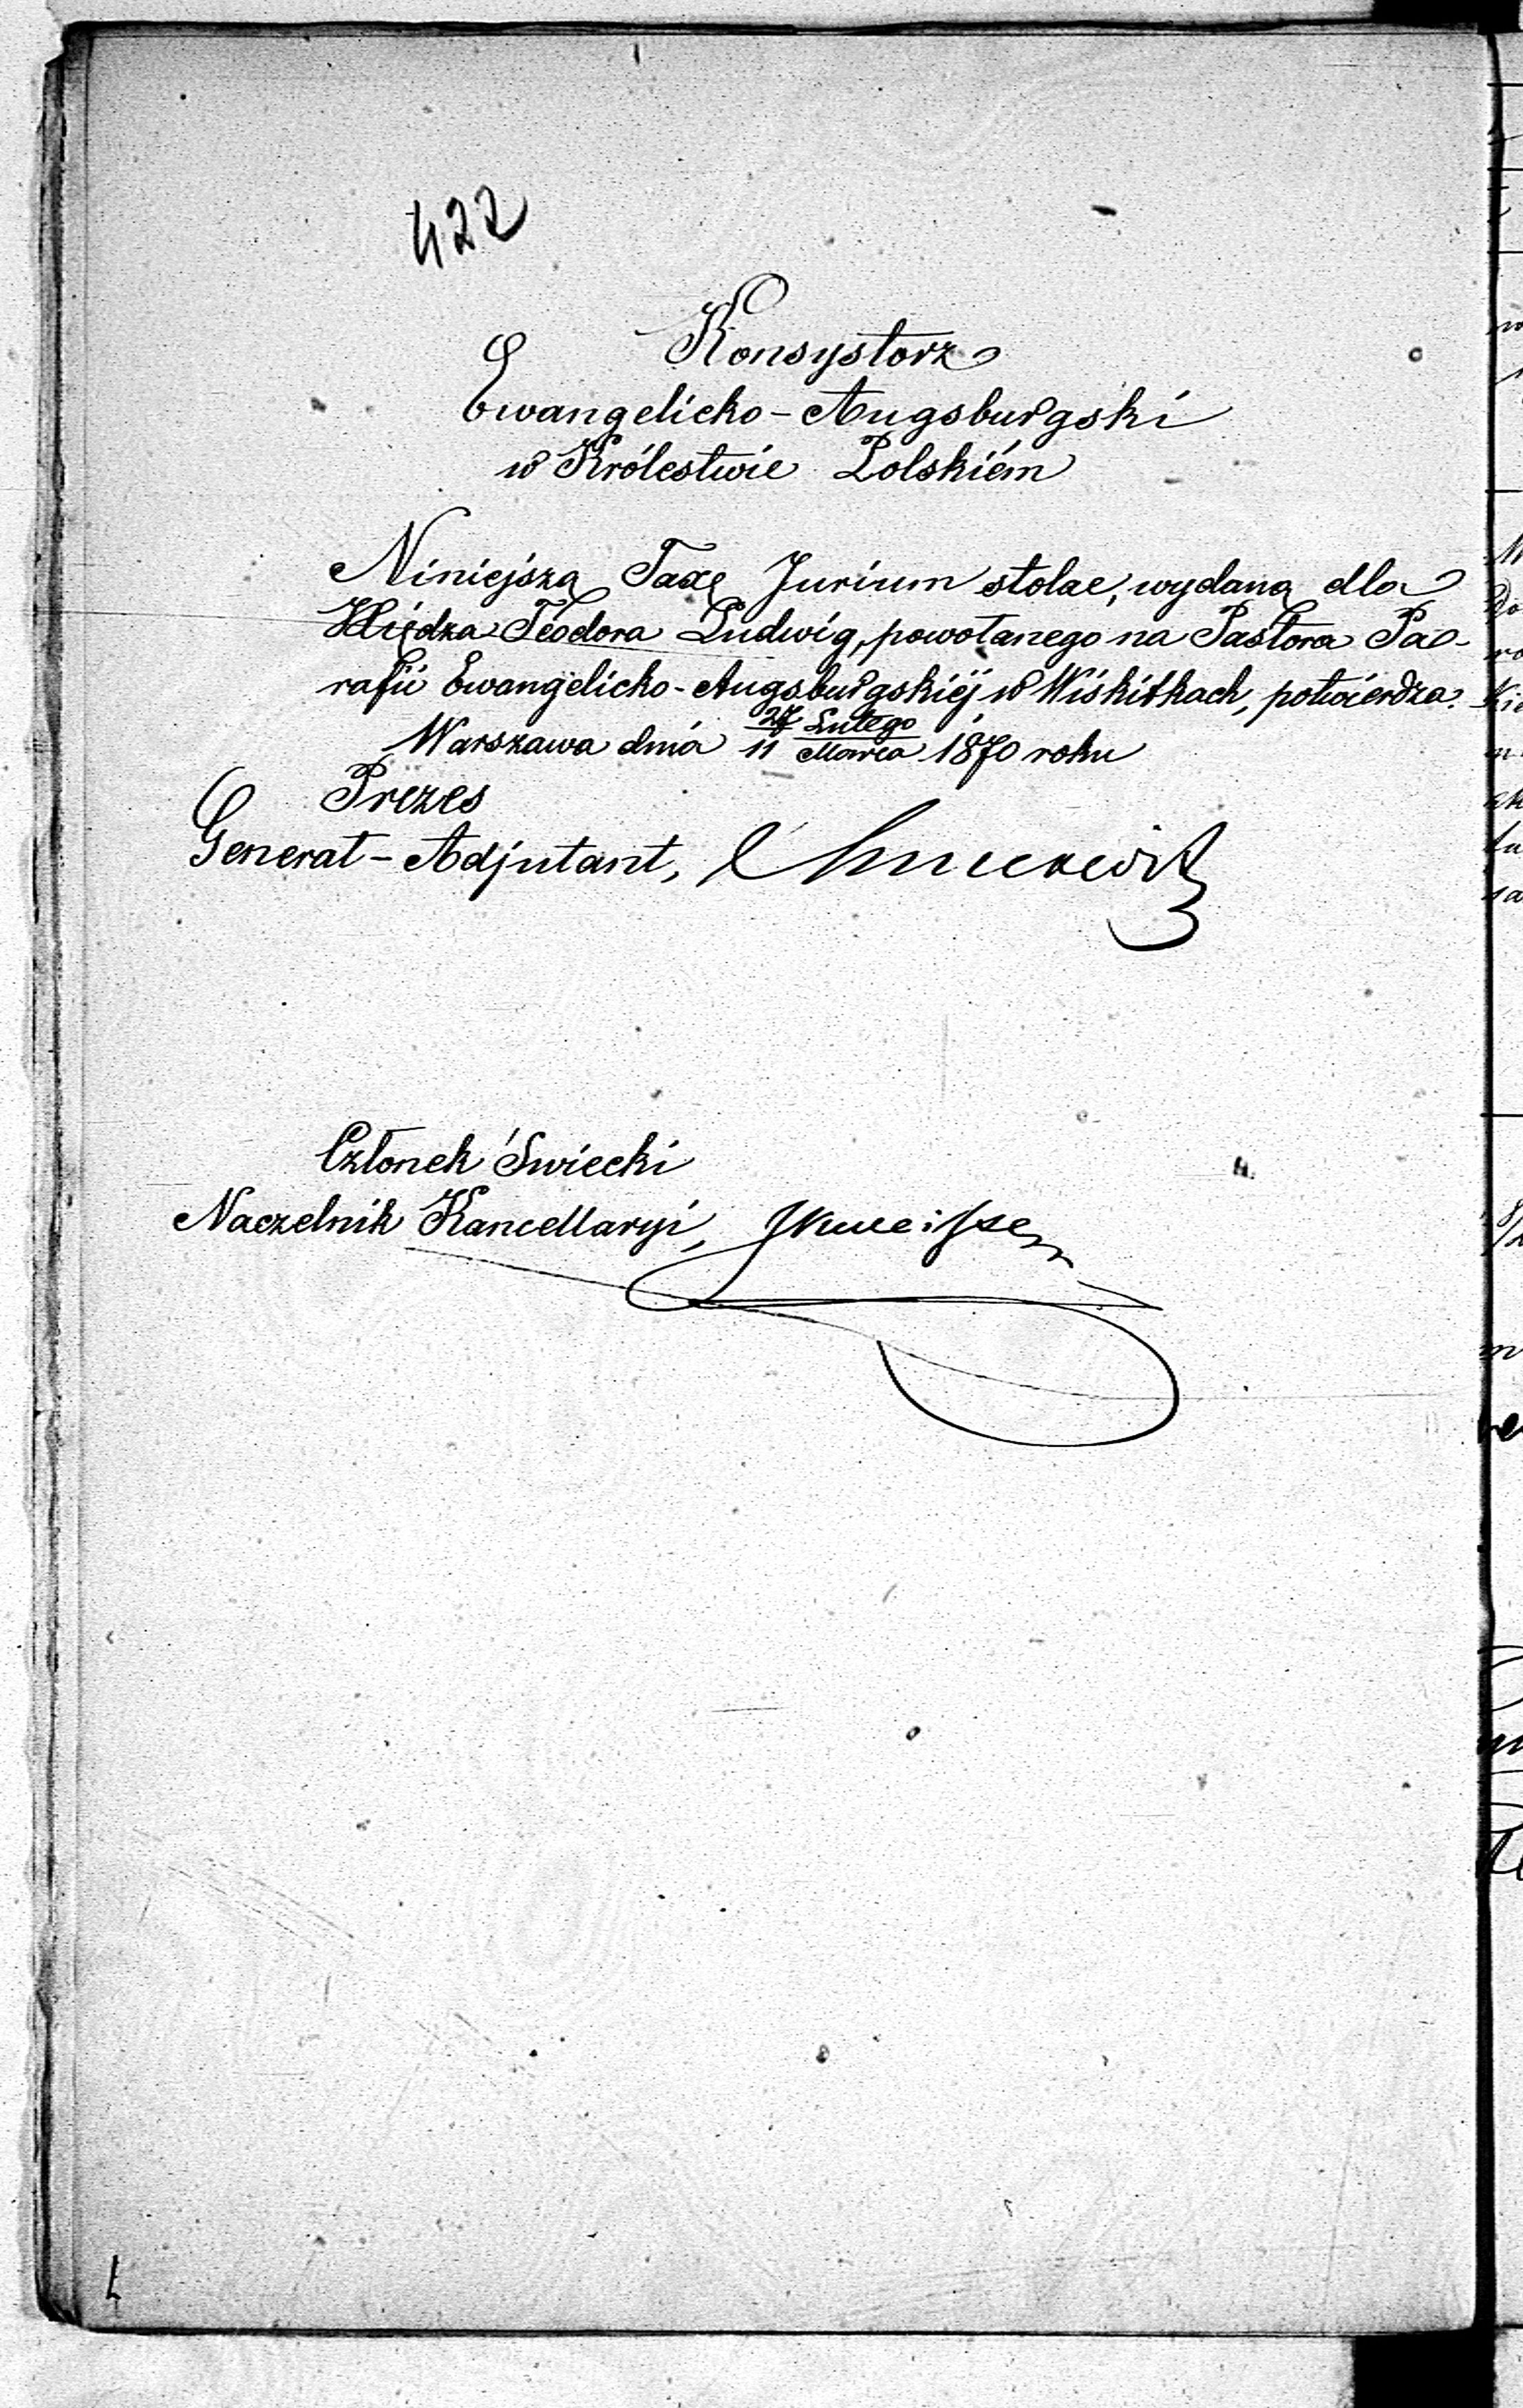 422
Konsystorz
Ewangelicko-Augsburgski
w Królestwie Polskiém
Niniejszą Taxę Jurium stolae, wydaną dla
Xiędza Teodora Ludwig, powołanego na Pastora Pa-
rafii Ewangelicko-Augsburgskiéj w Wiskitkach, potwierdza.
Warszawa dnia 27 Lutego / 11 Marca 1870 roku
Prezes
Generał-Adjutant,
Członek Świecki
Naczelnik Kancellaryi,